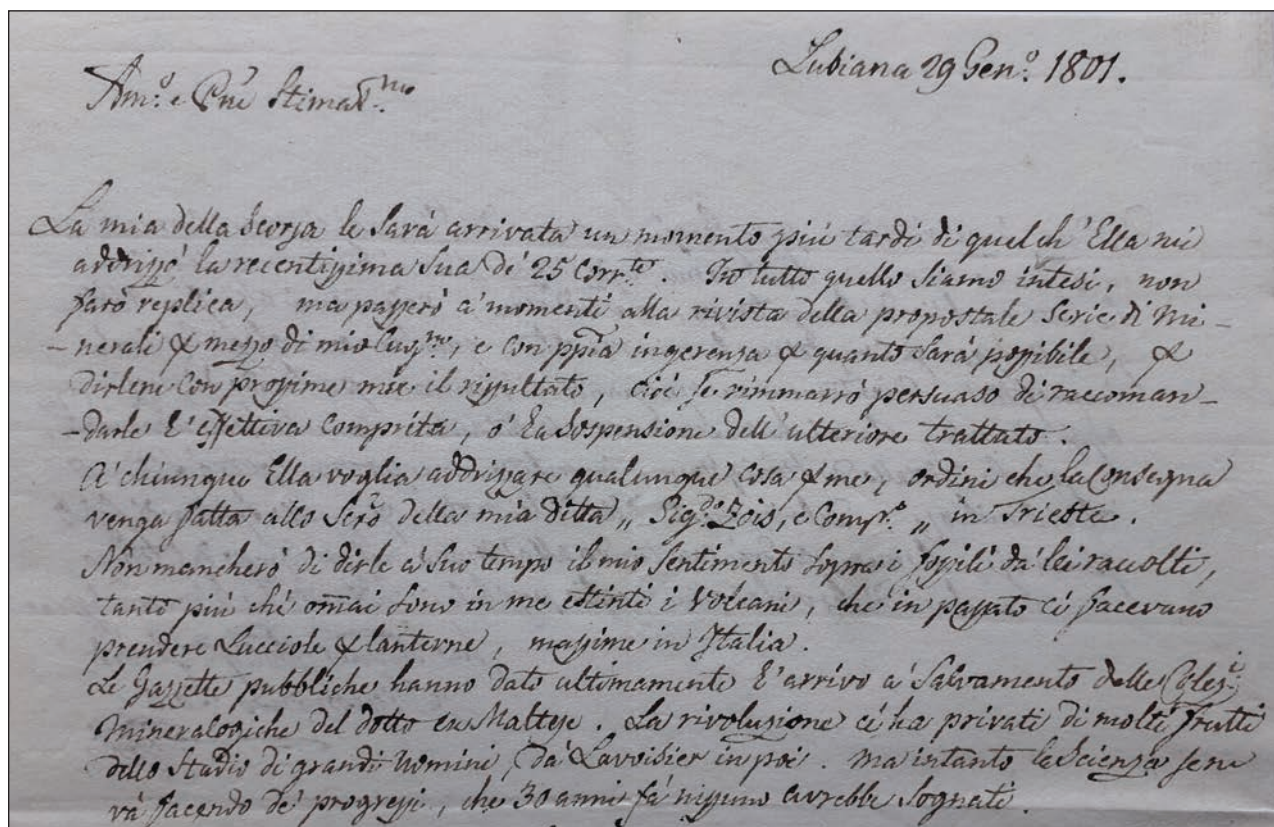 Lubiana 29 Gen.º 1801.
Am.º e Pne Stimat.mo
La mia della scorsa le sarà arrivata un momento più tardi di quel ch'Ella mi
addrizzò la recentissima sua de' 25 Corr.te. In tutto quello siamo intesi, non
farò replica, ma passerò a' momenti alla rivista della propostale serie di Mi-
-nerali & mezzo di mio Cug.no, e con ppia ingerenza & quanto sarà possibile, &
dirlene con prossime mie il rissultato, cioè se rimmarrò persuaso di raccoman-
-darle l'effettiva comprita, ò la sospensione dell'ulteriore trattato.
A' chiunque Ella voglia addrizzare qualunque cosa & me, ordini che la consegna
venga fatta allo Scrò della mia Ditta „ Sig.do Zois, e Comp.º „ in Trieste.
Non mancherò di dirle à suo tempo il mio sentimento sopra i fossili dà lei raccolti,
tanto più chè omai sono in me estinti i Volcani, che in passato ci facevano
prendere Lucciole & lanterne, massime in Italia.
Le Gazzette pubbliche hanno dato ultimamente l'arrivo à salvamento delle Collez.i
Mineralogiche del dotto ex Maltese. La rivoluzione ci ha privati di molti frutti
dello studio di grandi uomini, dà Lavoisier in poi. Ma intanto la scienza sene
và facendo de' progressi, che 30 anni fà nissuno avrebbe sognati.